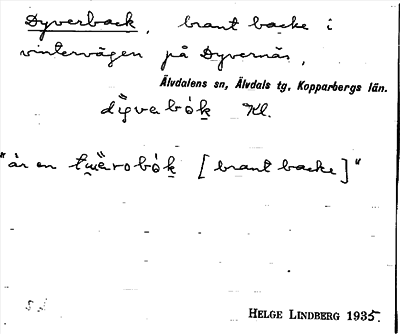 Dyverback, brant backe i
vintervägen på Dyvernäs,
Älvdalens sn, Älvdals tg, Kopparbergs län.
bók Kl.
"är en bók [brant backe]"
HELGE LINDBERG 1935.